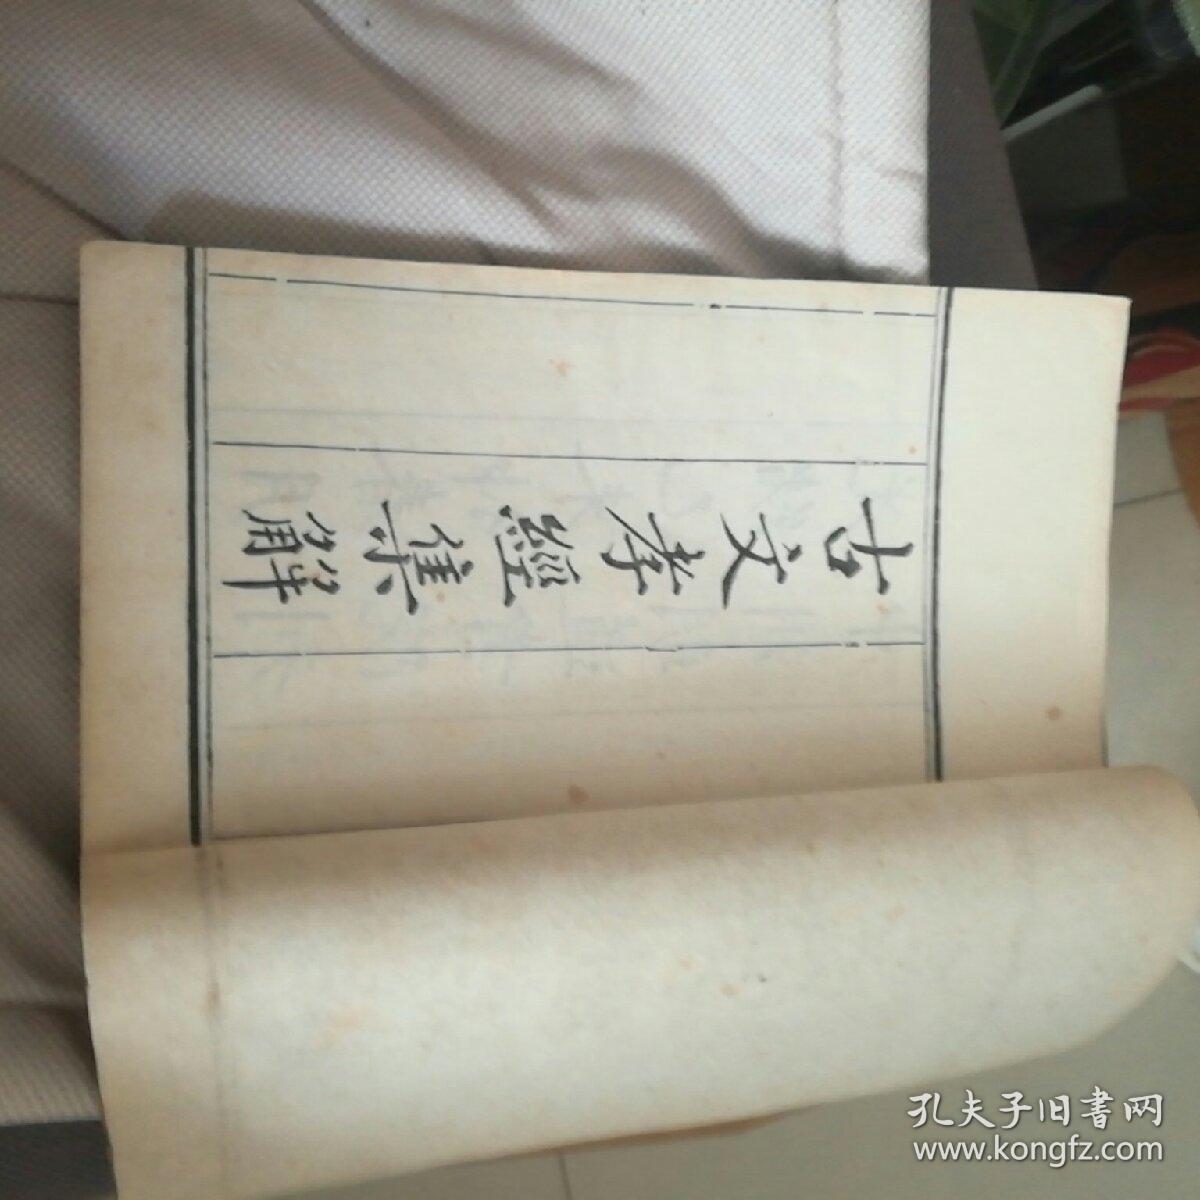 古文孝經集解
孔夫子旧書网
www.kongfz.com